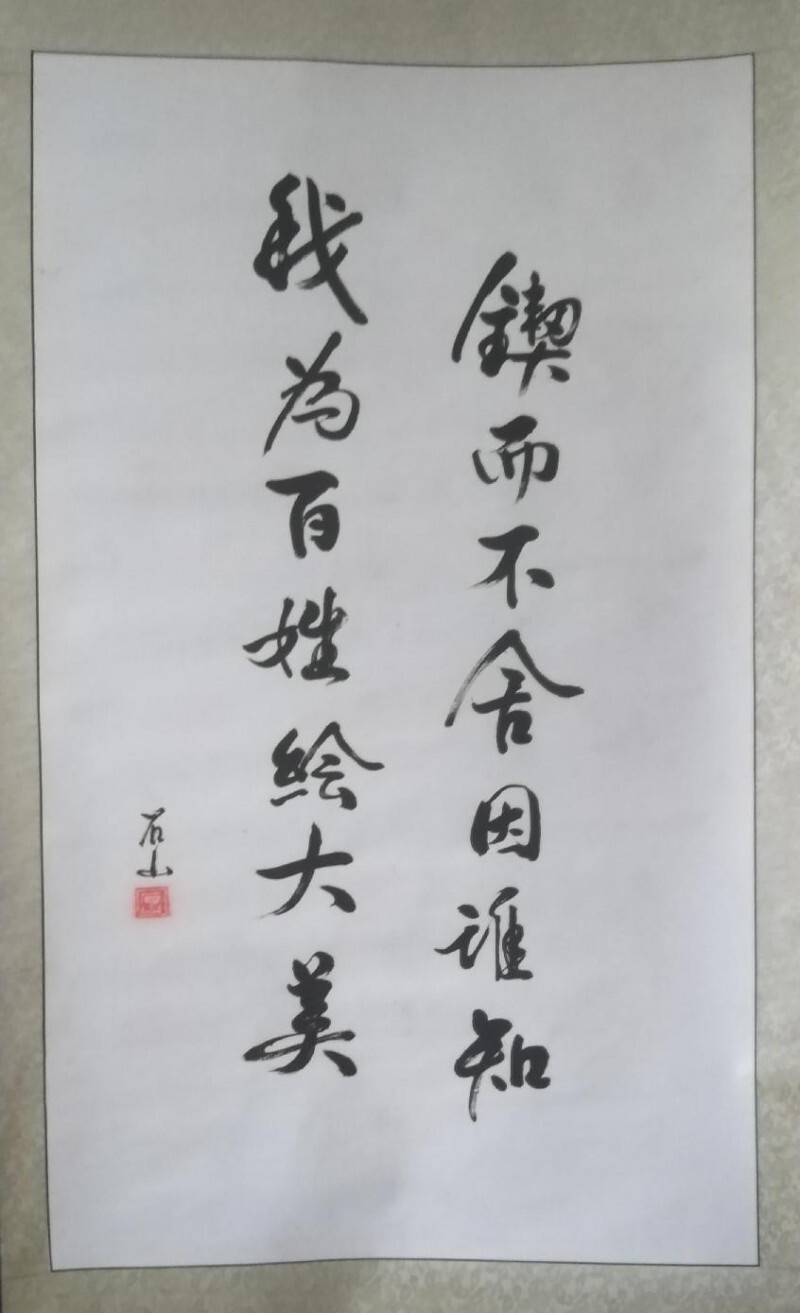 鍥而不舍因谁知
我為百姓絵大美
石山